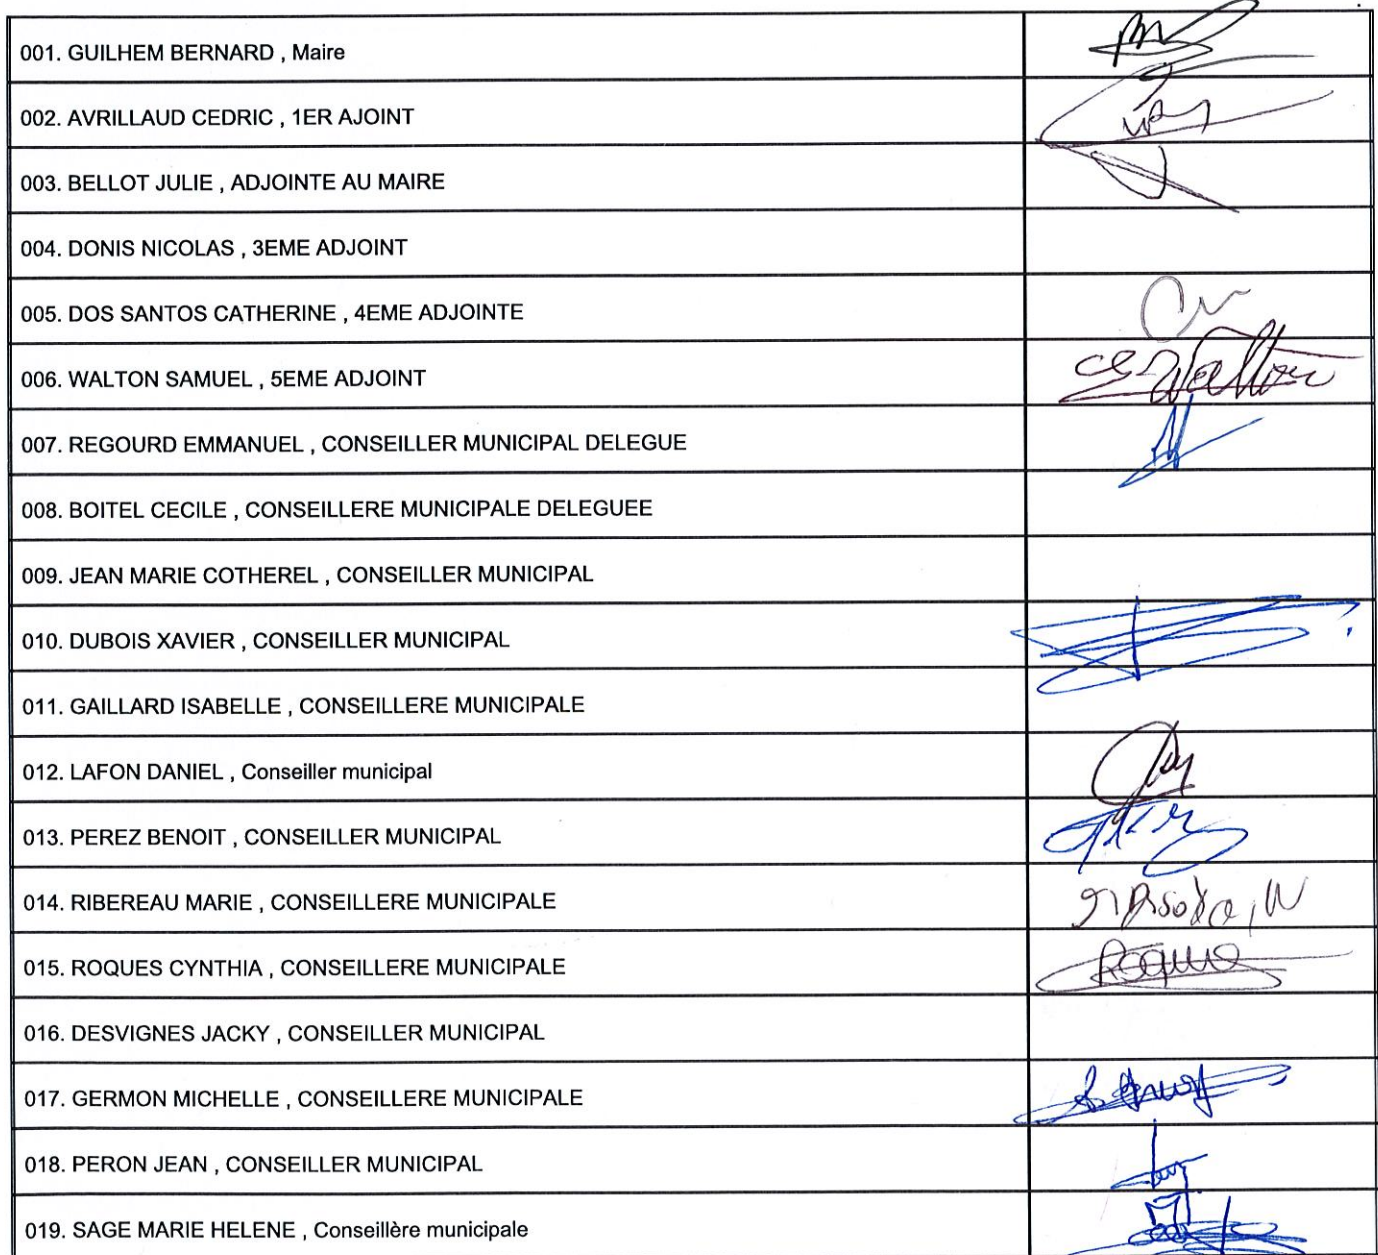 001. GUILHEM BERNARD , Maire
002. AVRILLAUD CEDRIC , 1ER AJOINT
003. BELLOT JULIE , ADJOINTE AU MAIRE
004. DONIS NICOLAS , 3EME ADJOINT
005. DOS SANTOS CATHERINE , 4EME ADJOINTE
006. WALTON SAMUEL , 5EME ADJOINT Walton
007. REGOURD EMMANUEL , CONSEILLER MUNICIPAL DELEGUE
008. BOITEL CECILE , CONSEILLERE MUNICIPALE DELEGUEE
009. JEAN MARIE COTHEREL , CONSEILLER MUNICIPAL
010. DUBOIS XAVIER , CONSEILLER MUNICIPAL
011. GAILLARD ISABELLE , CONSEILLERE MUNICIPALE
012. LAFON DANIEL , Conseiller municipal
013. PEREZ BENOIT , CONSEILLER MUNICIPAL
014. RIBEREAU MARIE , CONSEILLERE MUNICIPALE
015. ROQUES CYNTHIA , CONSEILLERE MUNICIPALE
016. DESVIGNES JACKY , CONSEILLER MUNICIPAL
017. GERMON MICHELLE , CONSEILLERE MUNICIPALE
018. PERON JEAN , CONSEILLER MUNICIPAL
019. SAGE MARIE HELENE , Conseillère municipale